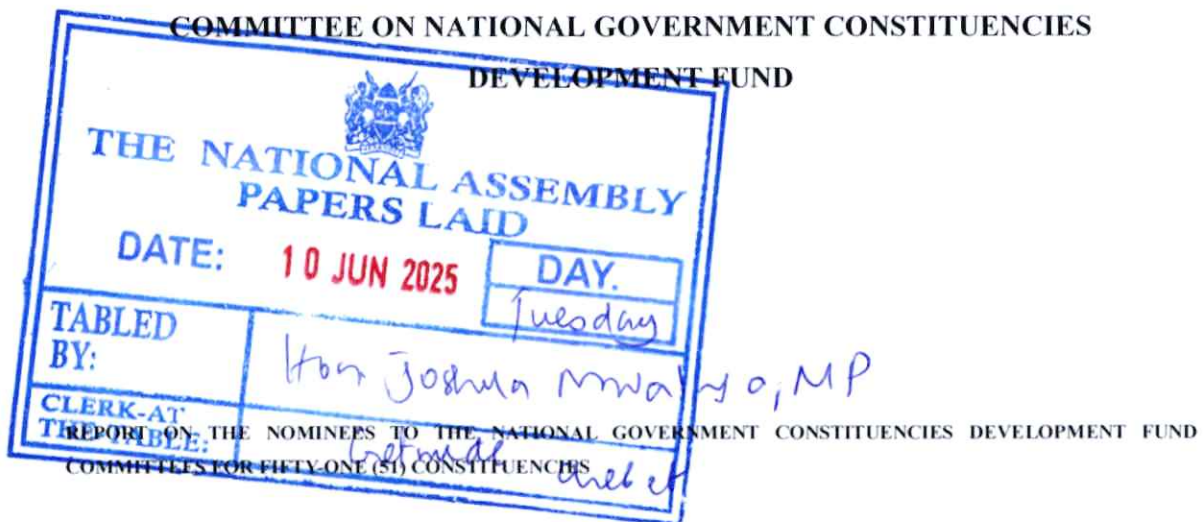 COMMITTEE ON NATIONAL GOVERNMENT CONSTITUENCIES
DEVELOPMENT FUND
THE NATIONAL ASSEMBLY
PAPERS LAID
DATE: 10 JUN 2025
DAY.
Tuesday
TABLED
BY:
Hon Joshua MP
CLERK-AT
THE TABLE:
REPORT ON THE NOMINEES TO THE NATIONAL GOVERNMENT CONSTITUENCIES DEVELOPMENT FUND
COMMITTEES FOR FIFTY-ONE (51) CONSTITUENCIES